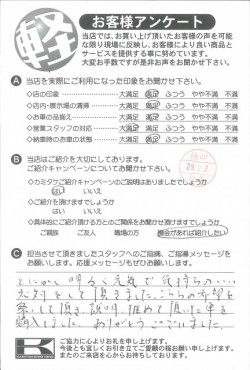 軽
お客様アンケート
当店では、お買い上げ頂いたお客様の声を可能
な限り現場に反映し、お客様により良い商品と
サービスを提供する事に努めています。
大変お手数ですが是非お声をお聞かせ下さい。
A 当店を実際にご利用になった印象をお聞かせ下さい。
◇店の印象 大満足 満足 ふつう やや不満 不満
◇店内・展示場の清掃 大満足 満足 ふつう やや不満 不満
◇お車の品揃え 大満足 満足 ふつう やや不満 不満
◇営業スタッフの対応 大満足 満足 ふつう やや不満 不満
◇納車時のお車の状態 大満足 満足 ふつう やや不満 不満
B 当店はご紹介を大切にしております。
ご紹介キャンペーンについてお聞かせ下さい。
◇カミタケご紹介キャンペーンのご説明はありましたでしょうか
はい いいえ
◇ご紹介を頂けますでしょうか
はい いいえ
◇具体的にご紹介頂ける方とのご関係をお聞かせ頂けますでしょうか
ご親族 ご友人 職場の方 機会があれば紹介したい
C 担当させて頂きましたスタッフへのご指摘、ご指導メッセージを
お願いします。応援メッセージもぜひお願いします。
とにかく明るく元気で気持ちのいい
応対をして頂きました。こちらの希望を
察して頂き
購入しました。ありがとうございました。
K
ご協力に心よりお礼を申し上げます。
今後とも宜しくお引き立てご愛顧の程お願い申し上げます。
またのご来店を心からお待ちしております。